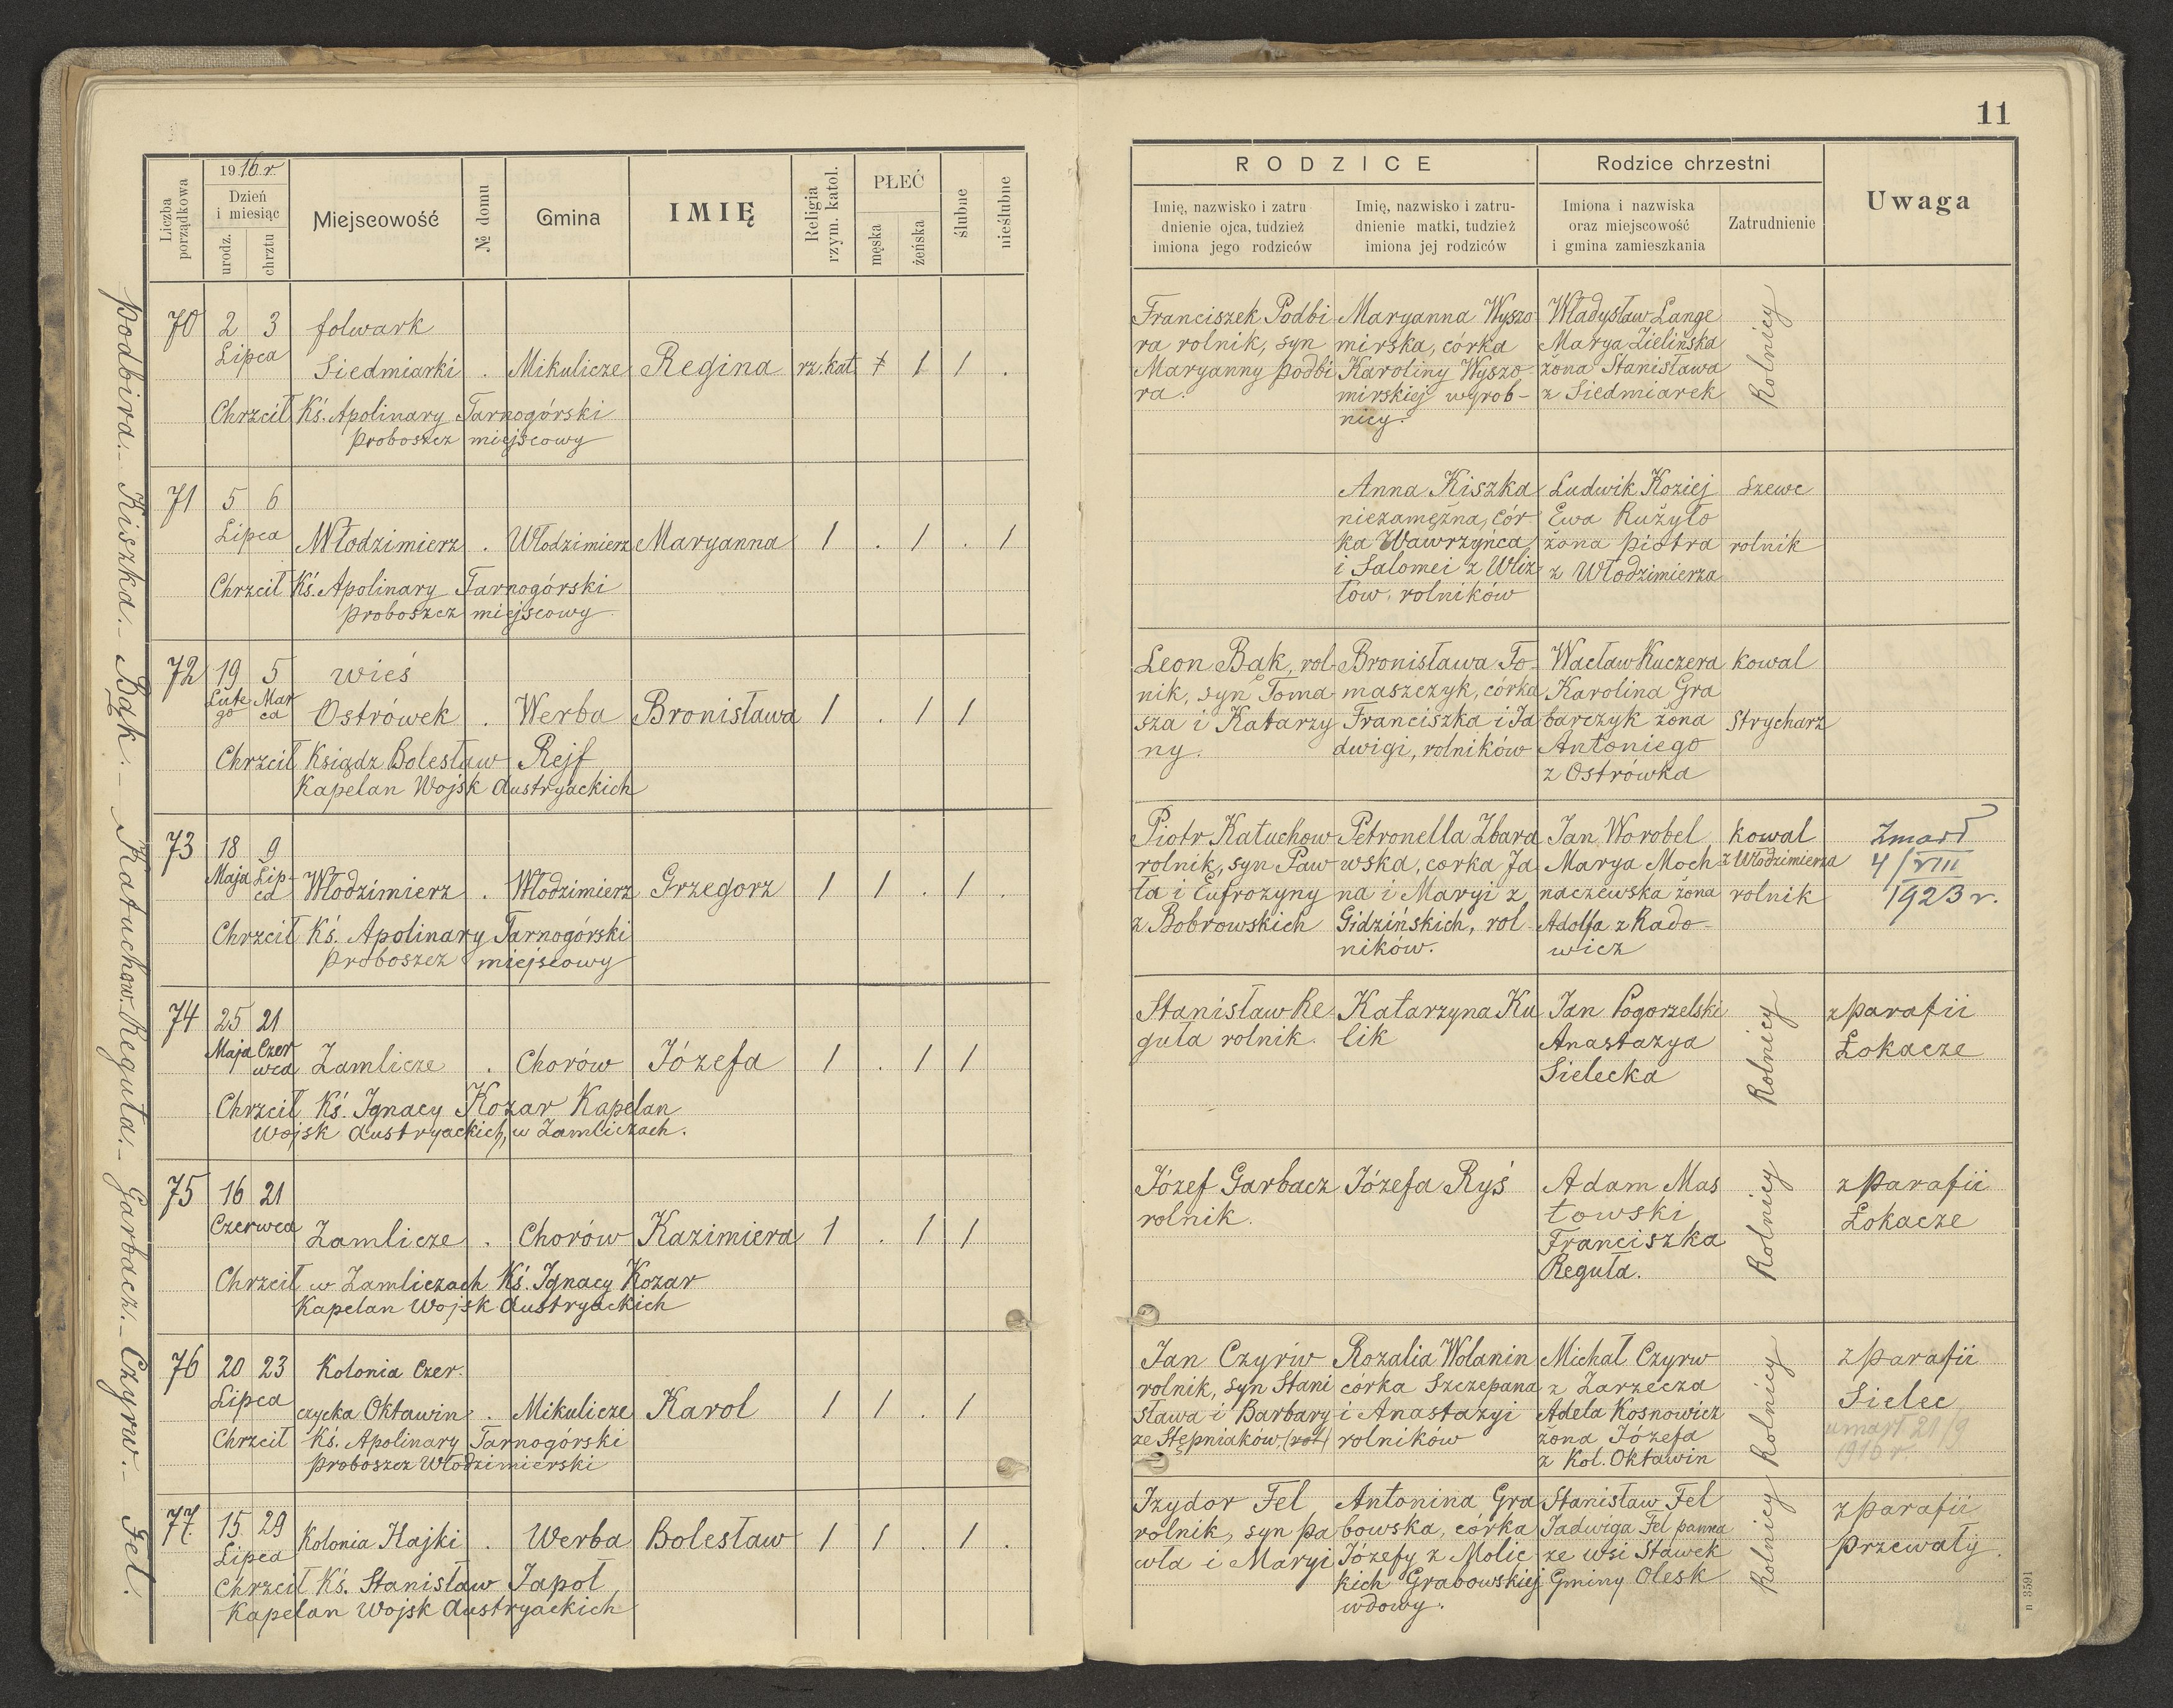 11
1916 r.
Liczba porządkowa
Dzień i miesiąc
urodz.
chrztu
Miejscowość
№ domu
Gmina
IMIĘ
Religia rzym. katol.
PŁEĆ
męska
żeńska
ślubne
nieślubne
RODZICE
Imię, nazwisko i zatru
dnienie ojca, tudzież
imiona jego rodziców
Imię, nazwisko i zatru-
dnienie matki, tudzież
imiona jej rodziców
Rodzice chrzestni
Imiona i nazwiska
oraz miejscowość
i gmina zamieszkania
Zatrudnienie
Uwaga
podbira.- Kiszka.- Bąk.- Katuchow.- Reguła.- Garbacz.- Czyrw.- Fel.
70 2 3 folwark
Lipca Siedmiarki . Mikulicze Regina rz.kat. 1 1 .
Chrzcił Kś. Apolinary Tarnogórski
proboszcz miejscowy
Franciszek Podbi
ra rolnik, syn
Maryanny podbi
ra.
Maryanna Wyszo
mirska, córka
Karoliny Wyszo
mirskiej wyrob-
nicy.
Władysław Lange
Marya Zielińska
żona Stanisława
z Siedmiarek
Rolnicy
71 5 6
Lipca Włodzimierz . Włodzimierz Maryanna 1 . 1 . 1
Chrzcił Kś. Apolinary Tarnogórski
proboszcz miejscowy
Anna Kiszka
niezamężna, cór
ka Wawrzyńca
i Salomei z Wliz
łow. rolników
Ludwik Koziej
Ewa Rużyło
żona piotra
z Włodzimierza
Szewc
rolnik
72 19 5 wieś
Lute
go
Mar
ca
Ostrówek . Werba Bronisława 1 . 1 1
Chrzcił Ksiądz Bolesław Rejf
Kapelan Wojsk Austryackich
Leon Bąk, rol-
nik, syn Toma
sza i Katarzy
ny.
Bronisława To-
maszczyk, córka
Franciszka i Ja
dwigi, rolników
Wacław Kuczera
Karolina Gra
barczyk żona
Antoniego
z Ostrówka
kowal
Strycharz
73 18 9
Maja
Lip-
ca
Włodzimierz . Włodzimierz Grzegorz 1 1 . 1 .
Chrzcił Kś. Apolinary Tarnogórski
proboszcz miejscowy
Piotr Katuchow
rolnik, syn Paw
ła i Eufrozyny
z Bobrowskich
Petronella Zbara
wska, corka Ja
na i Maryi z
Gidzińskich, rol
ników.
Jan Worobel
Marya Moch
naczewska żona
Adolfa z Rado-
wicz
kowal
z Włodzimierza
rolnik
Zmarł
4/VIII
1923 r.
74 25 21
Maja
Czer
wca
Zamlicze . Chorów Józefa 1 . 1 1
Chrzcił Kś. Ignacy Kozar Kapelan
Wojsk Austryackich, w Zamliczach.
Stanisław Re
guła rolnik.
Katarzyna Ku
lik
Jan Pogorzelski
Anastazya
Sielecka
Rolnicy
z parafii
Łokacze
75 16 21
Czerwca Zamlicze . Chorów Kazimiera 1 . 1 1
Chrzcił w Zamliczach Kś. Ignacy Kozar
Kapelan Wojsk Austryackich
Józef Garbacz
rolnik.
Józefa Ryś
Adam Mas
łowski
Franciszka
Reguła.
Rolnicy
z parafii
Łokacze
76 20 23 Kolonia Czer.
Lipca czycka Oktawin . Mikulicze Karol 1 1 . 1
Chrzcił Kś. Apolinary Tarnogórski
proboszcz Włodzimierski
Jan Czyrw
rolnik, syn Stani
sława i Barbary
ze Stępniaków, (rol)
Rozalia Wolanin
córka Szczepana
i Anastazyi
rolników
Michał Czyrw
z Zarzecza
Adela Kosnowicz
żona Józefa
z Kol. Oktawin
Rolnicy
z parafii
Sielec
umarł 21/9
1916 r.
77. 15 29
Lipca Kolonia Hajki . Werba Bolesław 1 1 . 1 .
Chrzcił Kś. Stanisław Japoł
Kapelan Wojsk Austryackich
Izydor Fel
rolnik, syn pa
wła i Maryi
Antonina Gra
bowska, córka
Józefy z Molic
kich Grabowskiej
wdowy.
Stanisław Fel
Jadwiga Fel panna
ze wsi Stawek
Gminy Olesk
Rolnicy
z parafii
przewały.
n 3591